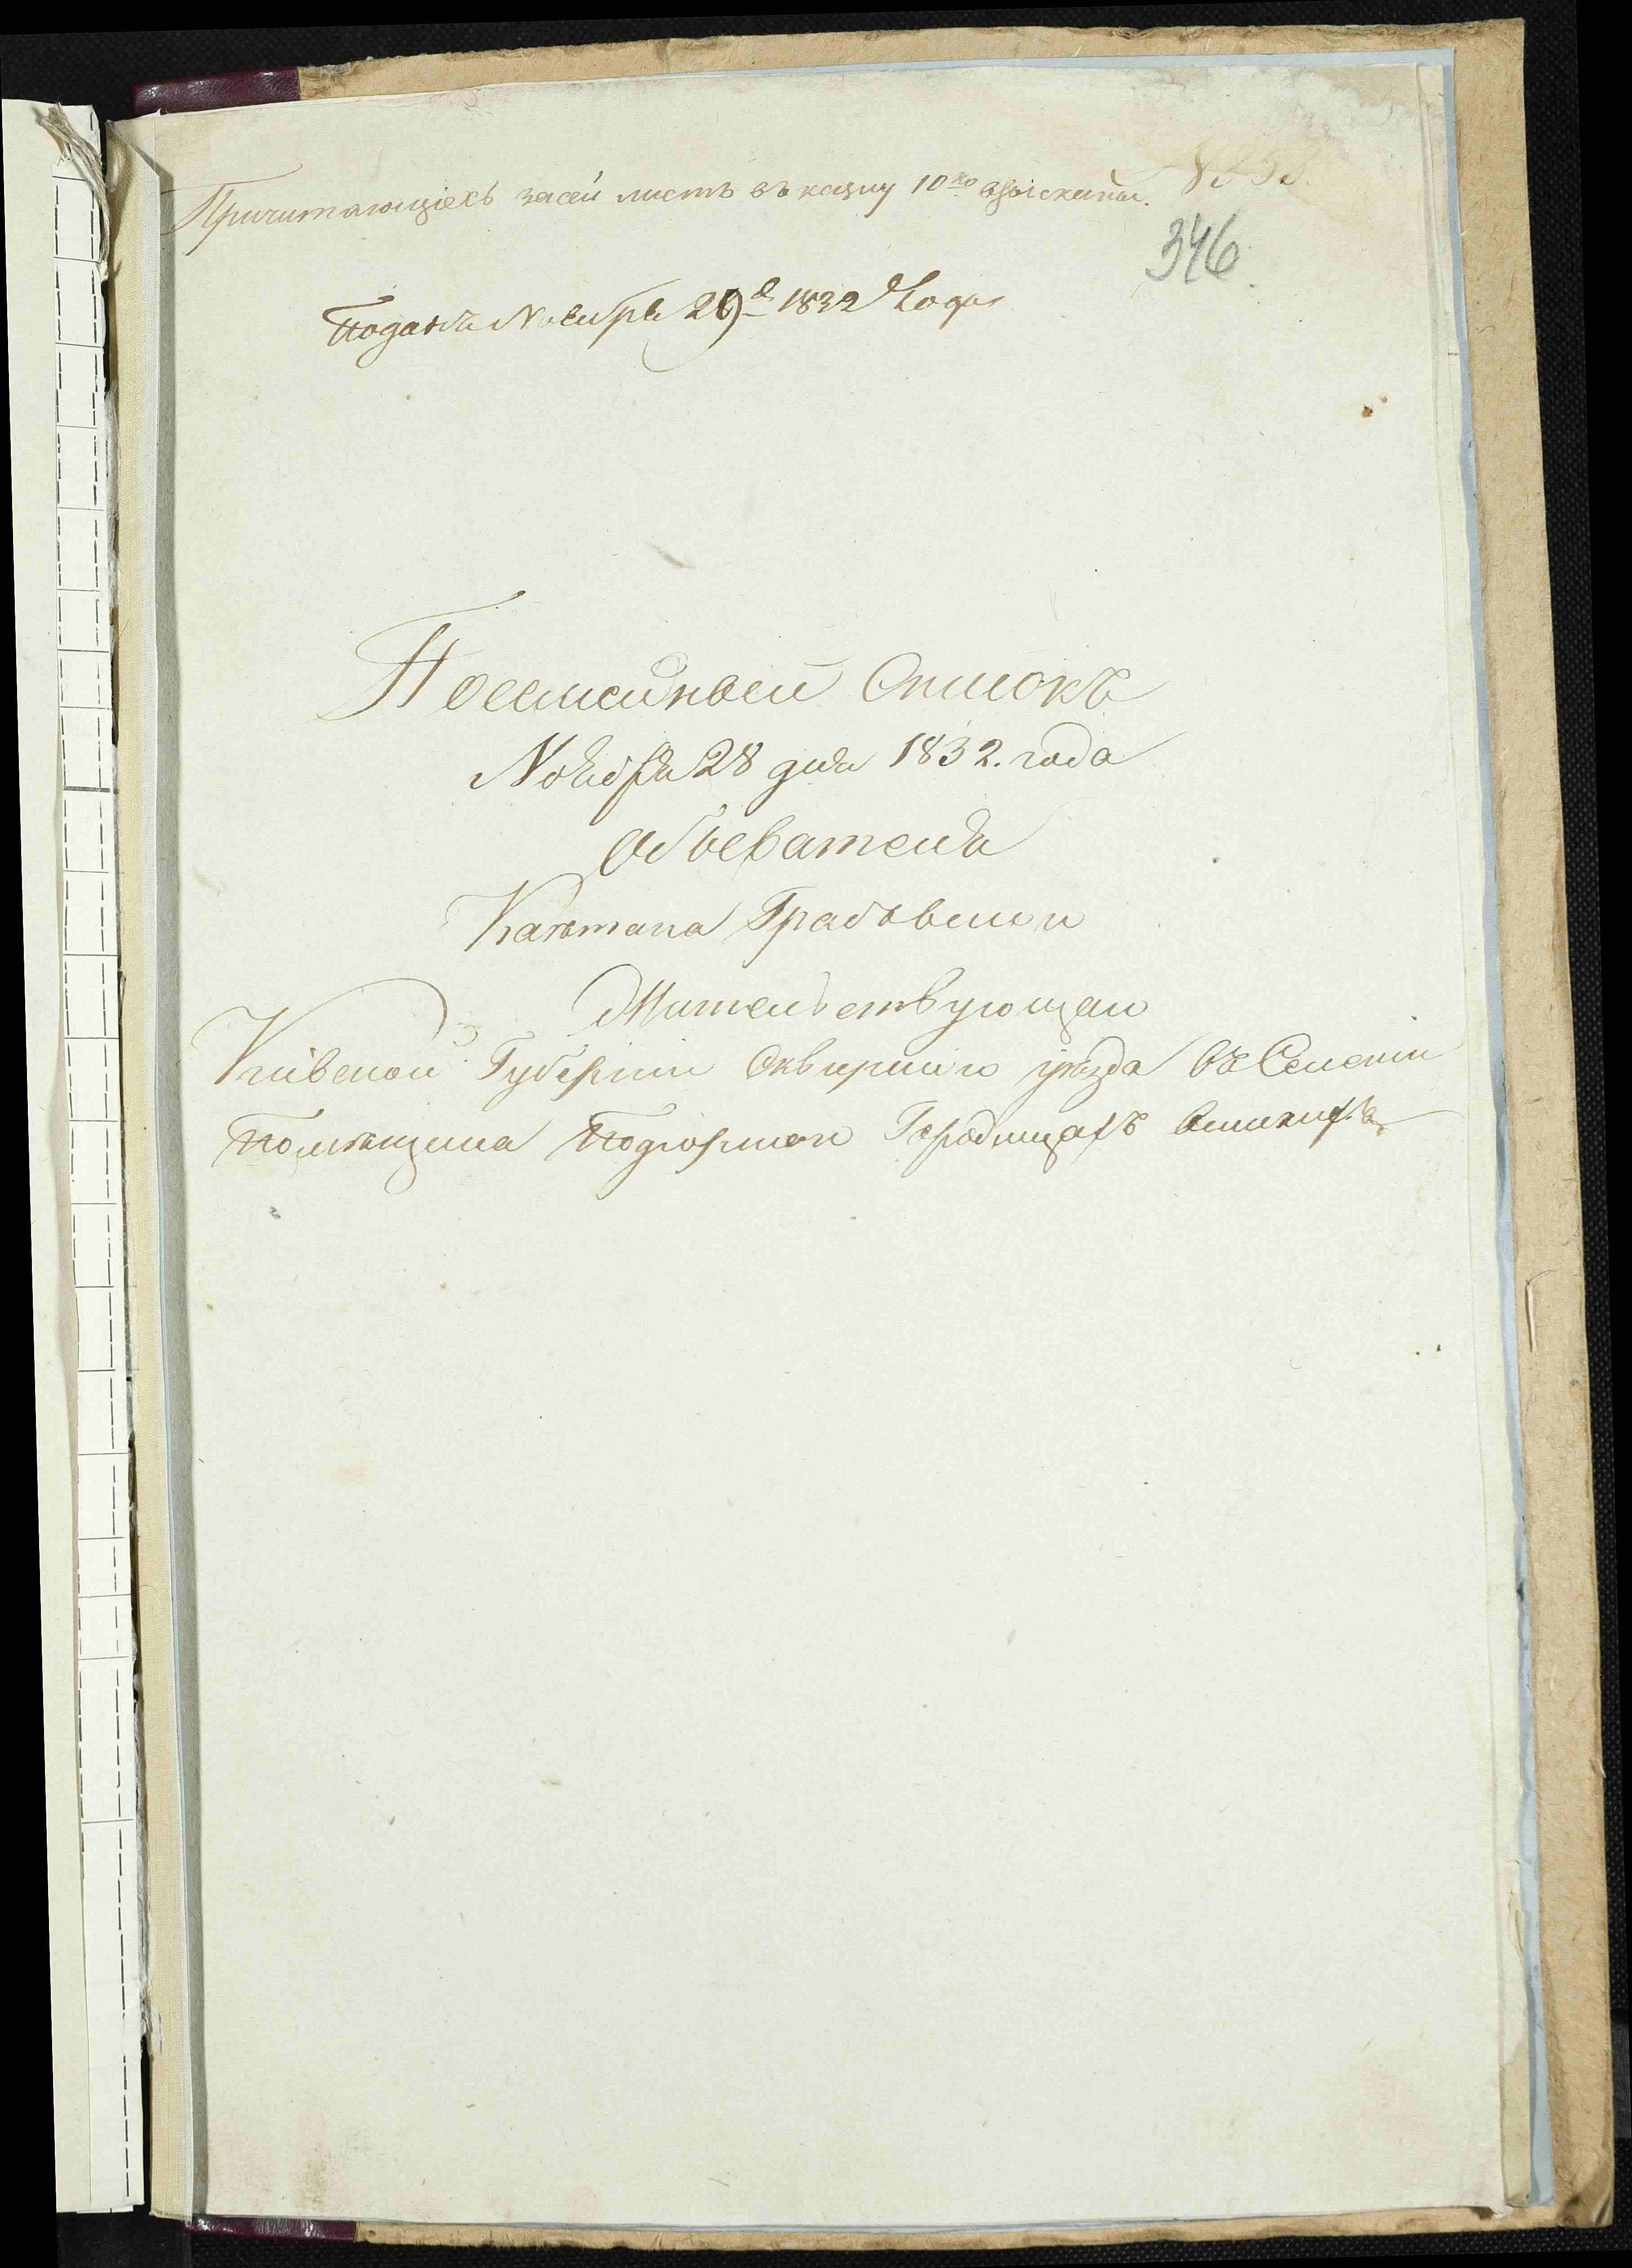 Причитающіесъ засей листъ въ казну 10 ко взысканы.
346
Поданъ Ноября 29 д 1832 Года
Посемейный Списокъ
Ноября 28 дня 1832. года
Обывателя
Каэтана Грабовски
Жительствующаи
Кіивской Губерніи Сквирскаго уѣзда въ Селеніи
Помѣщика Подгорскаго Городищахъ